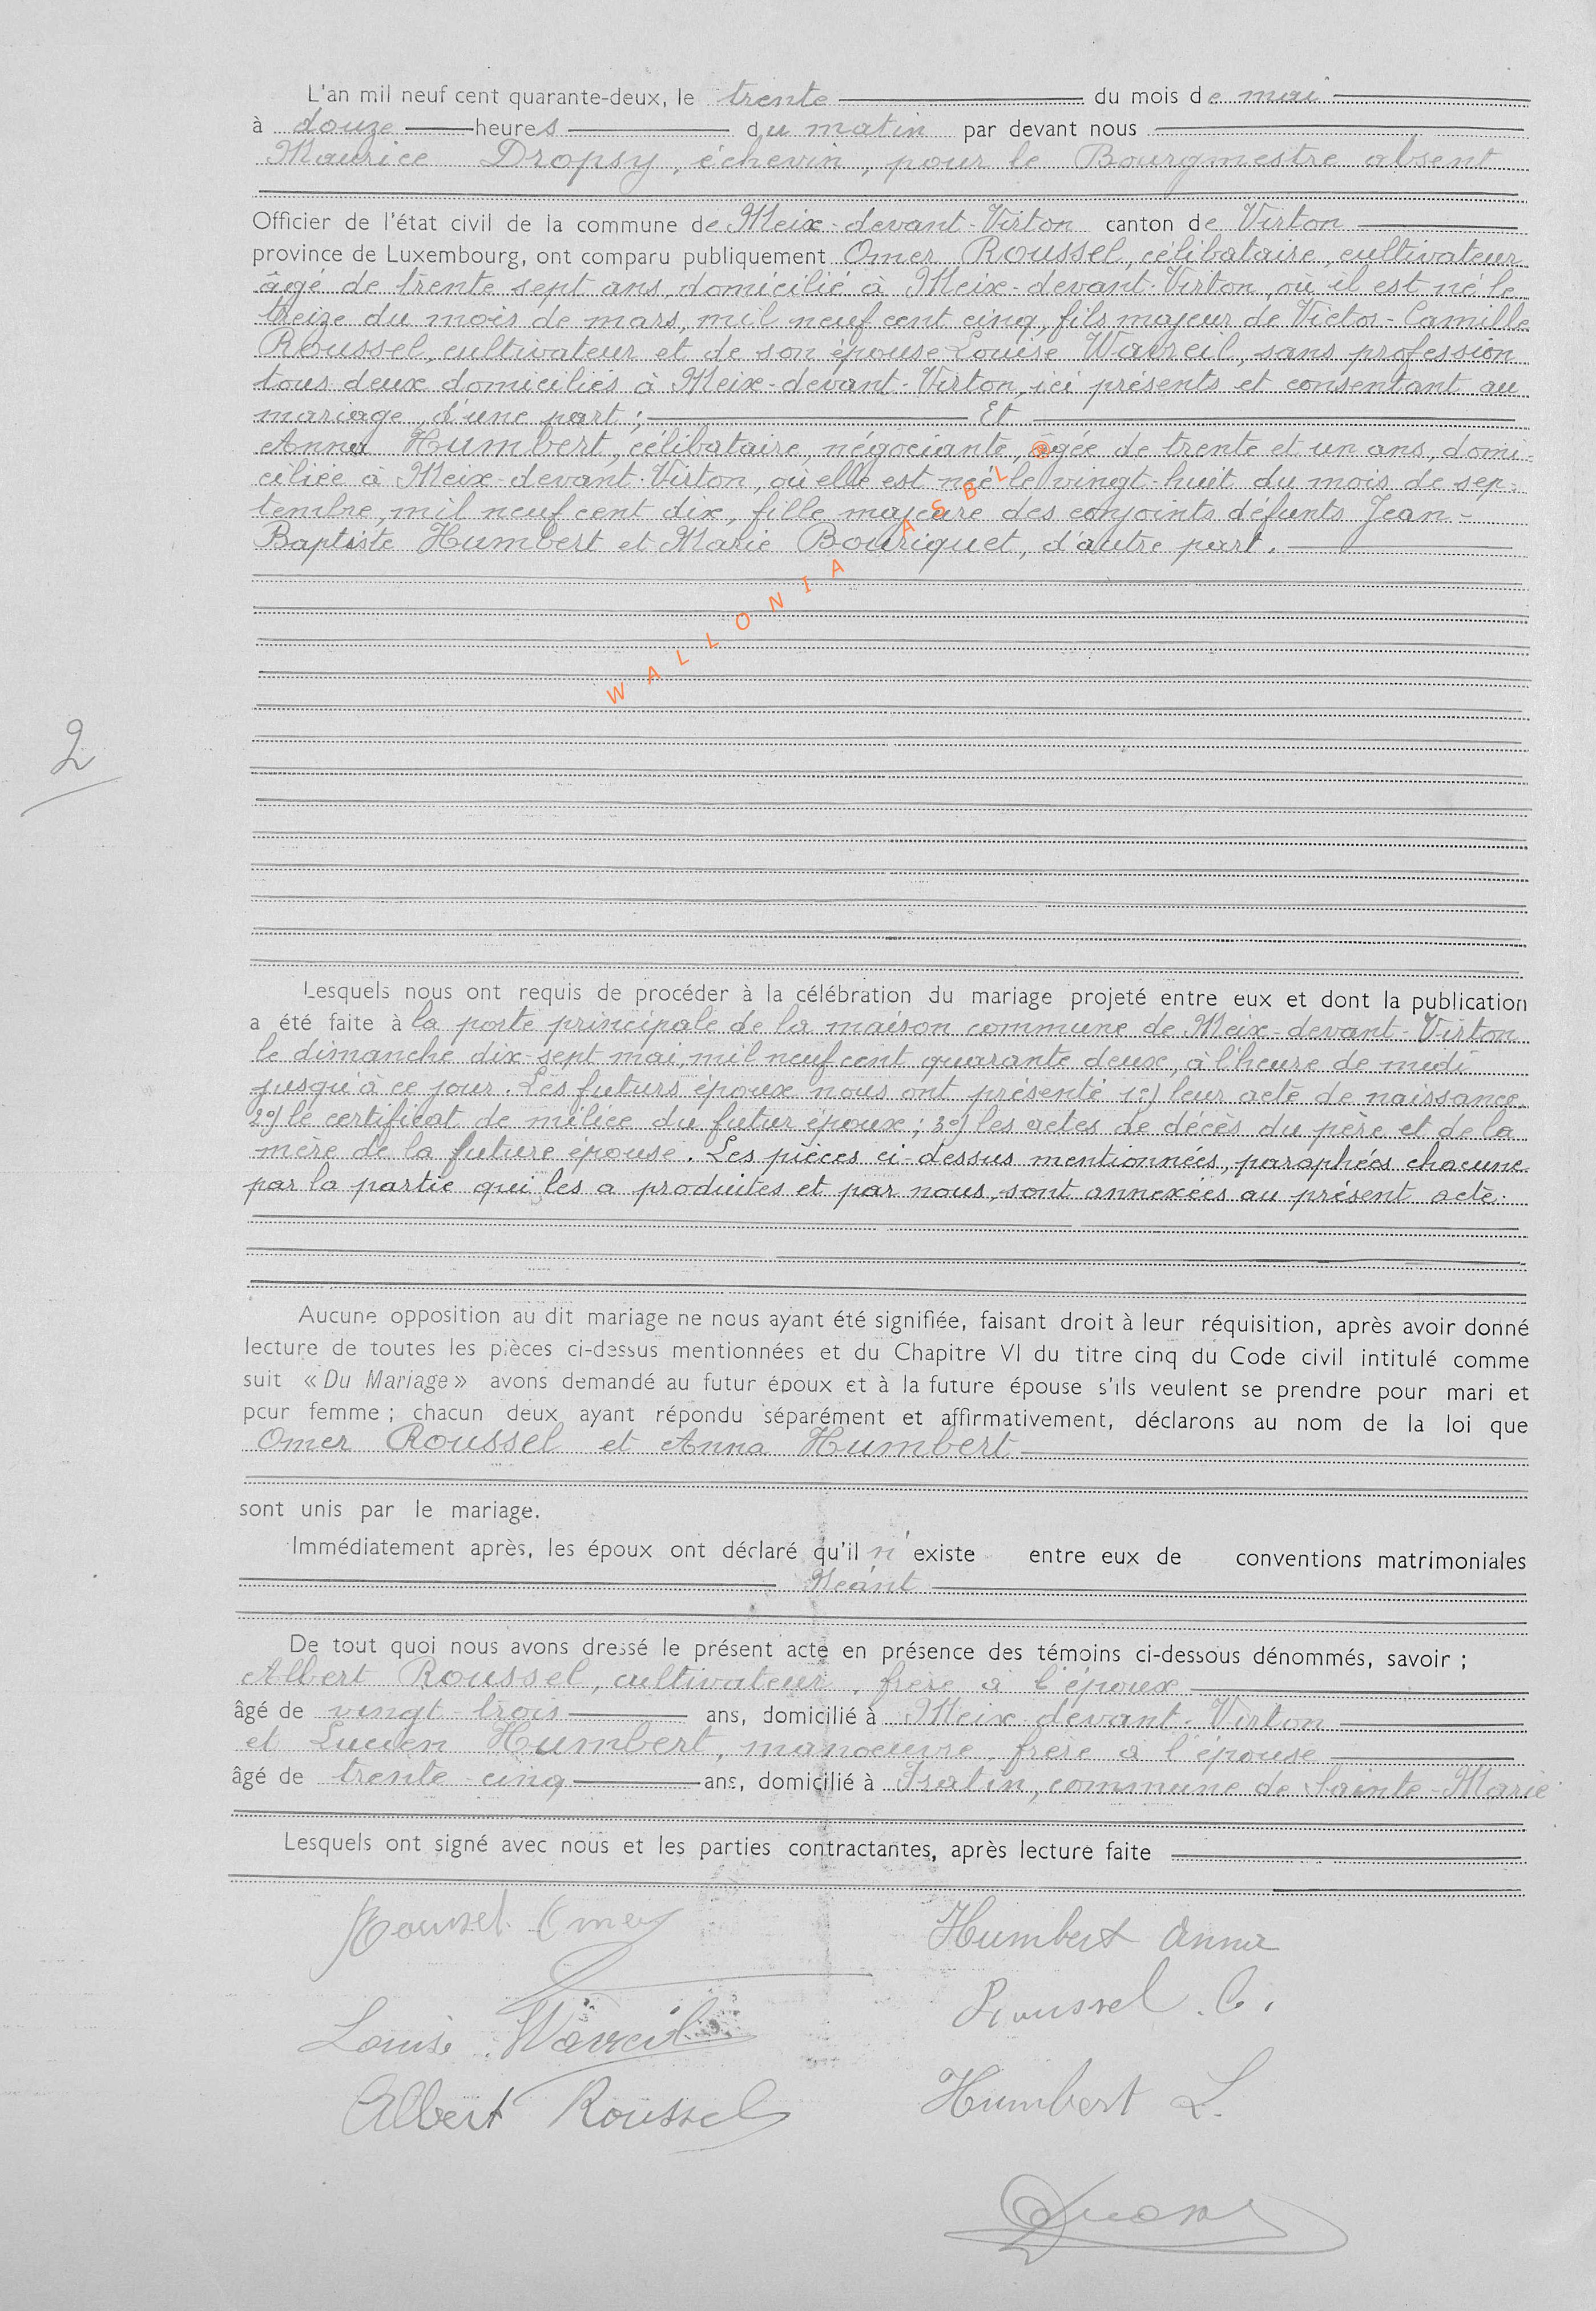 L'an mil neuf cent quarante-deux, le trente du mois de mai
à douze heures du matin par devant nous
Maurice Dropsy, échevin, pour le Bourgmestre absent
Officier de l'état civil de la commune de Meix-devant-Virton canton de Virton
province de Luxembourg, ont comparu publiquement Omer Roussel, célibataire, cultivateur
âgé de trente sept ans, domicilié à Meix-devant-Virton, où il est né le
treize du mois de mars, mil neuf cent cinq, fils majeur de Victor-Camille
Roussel, cultivateur et de son épouse Louise Wavreil, sans profession
tous deux domiciliés à Meix-devant-Virton, ici présents et consentant au
mariage, d'une part ; Et
Anna Humbert, célibataire, négociante, âgée de trente et un ans, domi-
ciliée à Meix-devant-Virton, où elle est née le vingt-huit du mois de sep-
tembre, mil neuf cent dix, fille majeure des conjoints défunts Jean-
Baptiste Humbert et Marie Bouriquet, d'autre part.
@ WALLONIA ASBL
2
Lesquels nous ont requis de procéder à la célébration du mariage projeté entre eux et dont la publication
a été faite à la porte principale de la maison commune de Meix-devant-Virton
le dimanche dix-sept mai, mil neuf cent quarante deux, à l'heure de midi
jusqu'à ce jour. Les futurs époux nous ont présenté 1°) leur acte de naissance,
2°) le certificat de milice du futur époux ; 3°) les actes de décès du père et de la
mère de la future épouse. Les pièces ci-dessus mentionnées, paraphées chacune
par la partie qui les a produites et par nous, sont annexées au présent acte.
Aucune opposition au dit mariage ne nous ayant été signifiée, faisant droit à leur réquisition, après avoir donné
lecture de toutes les pièces ci-dessus mentionnées et du Chapitre VI du titre cinq du Code civil intitulé comme
suit «Du Mariage» avons demandé au futur époux et à la future épouse s'ils veulent se prendre pour mari et
pour femme ; chacun deux ayant répondu séparément et affirmativement, déclarons au nom de la loi que
Omer Roussel et Anna Humbert
sont unis par le mariage.
Immédiatement après, les époux ont déclaré qu'il n'existe entre eux de conventions matrimoniales
Néant
De tout quoi nous avons dressé le présent acte en présence des témoins ci-dessous dénommés, savoir ;
Albert Roussel, cultivateur, frère à l'époux
âgé de vingt-trois ans, domicilié à Meix-devant-Virton
et Lucien Humbert, manoeuvre, frère à l'épouse
âgé de trente-cinq ans, domicilié à Fratin, commune de Sainte-Marie
Lesquels ont signé avec nous et les parties contractantes, après lecture faite
Roussel Omer Humbert Anna
Roussel C.
Louise Wavreil
Albert Roussel Humbert L.